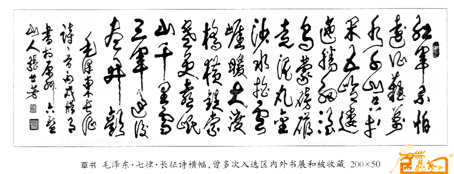 红軍不怕
遠征難萬
水千山只等
闲五岭逶
迤腾细浪
烏蒙磅礴
走泥丸金
沙水拍雲
崖暖大渡
橋横鐵索
寒更喜岷
山千里雪
三軍過後
尽开颜
毛澤东长征
诗一首
書於原州六盤
山人張世芳
草书 毛泽东·七律·长征诗横幅,曾多次入选区内外书展和被收藏 200×50